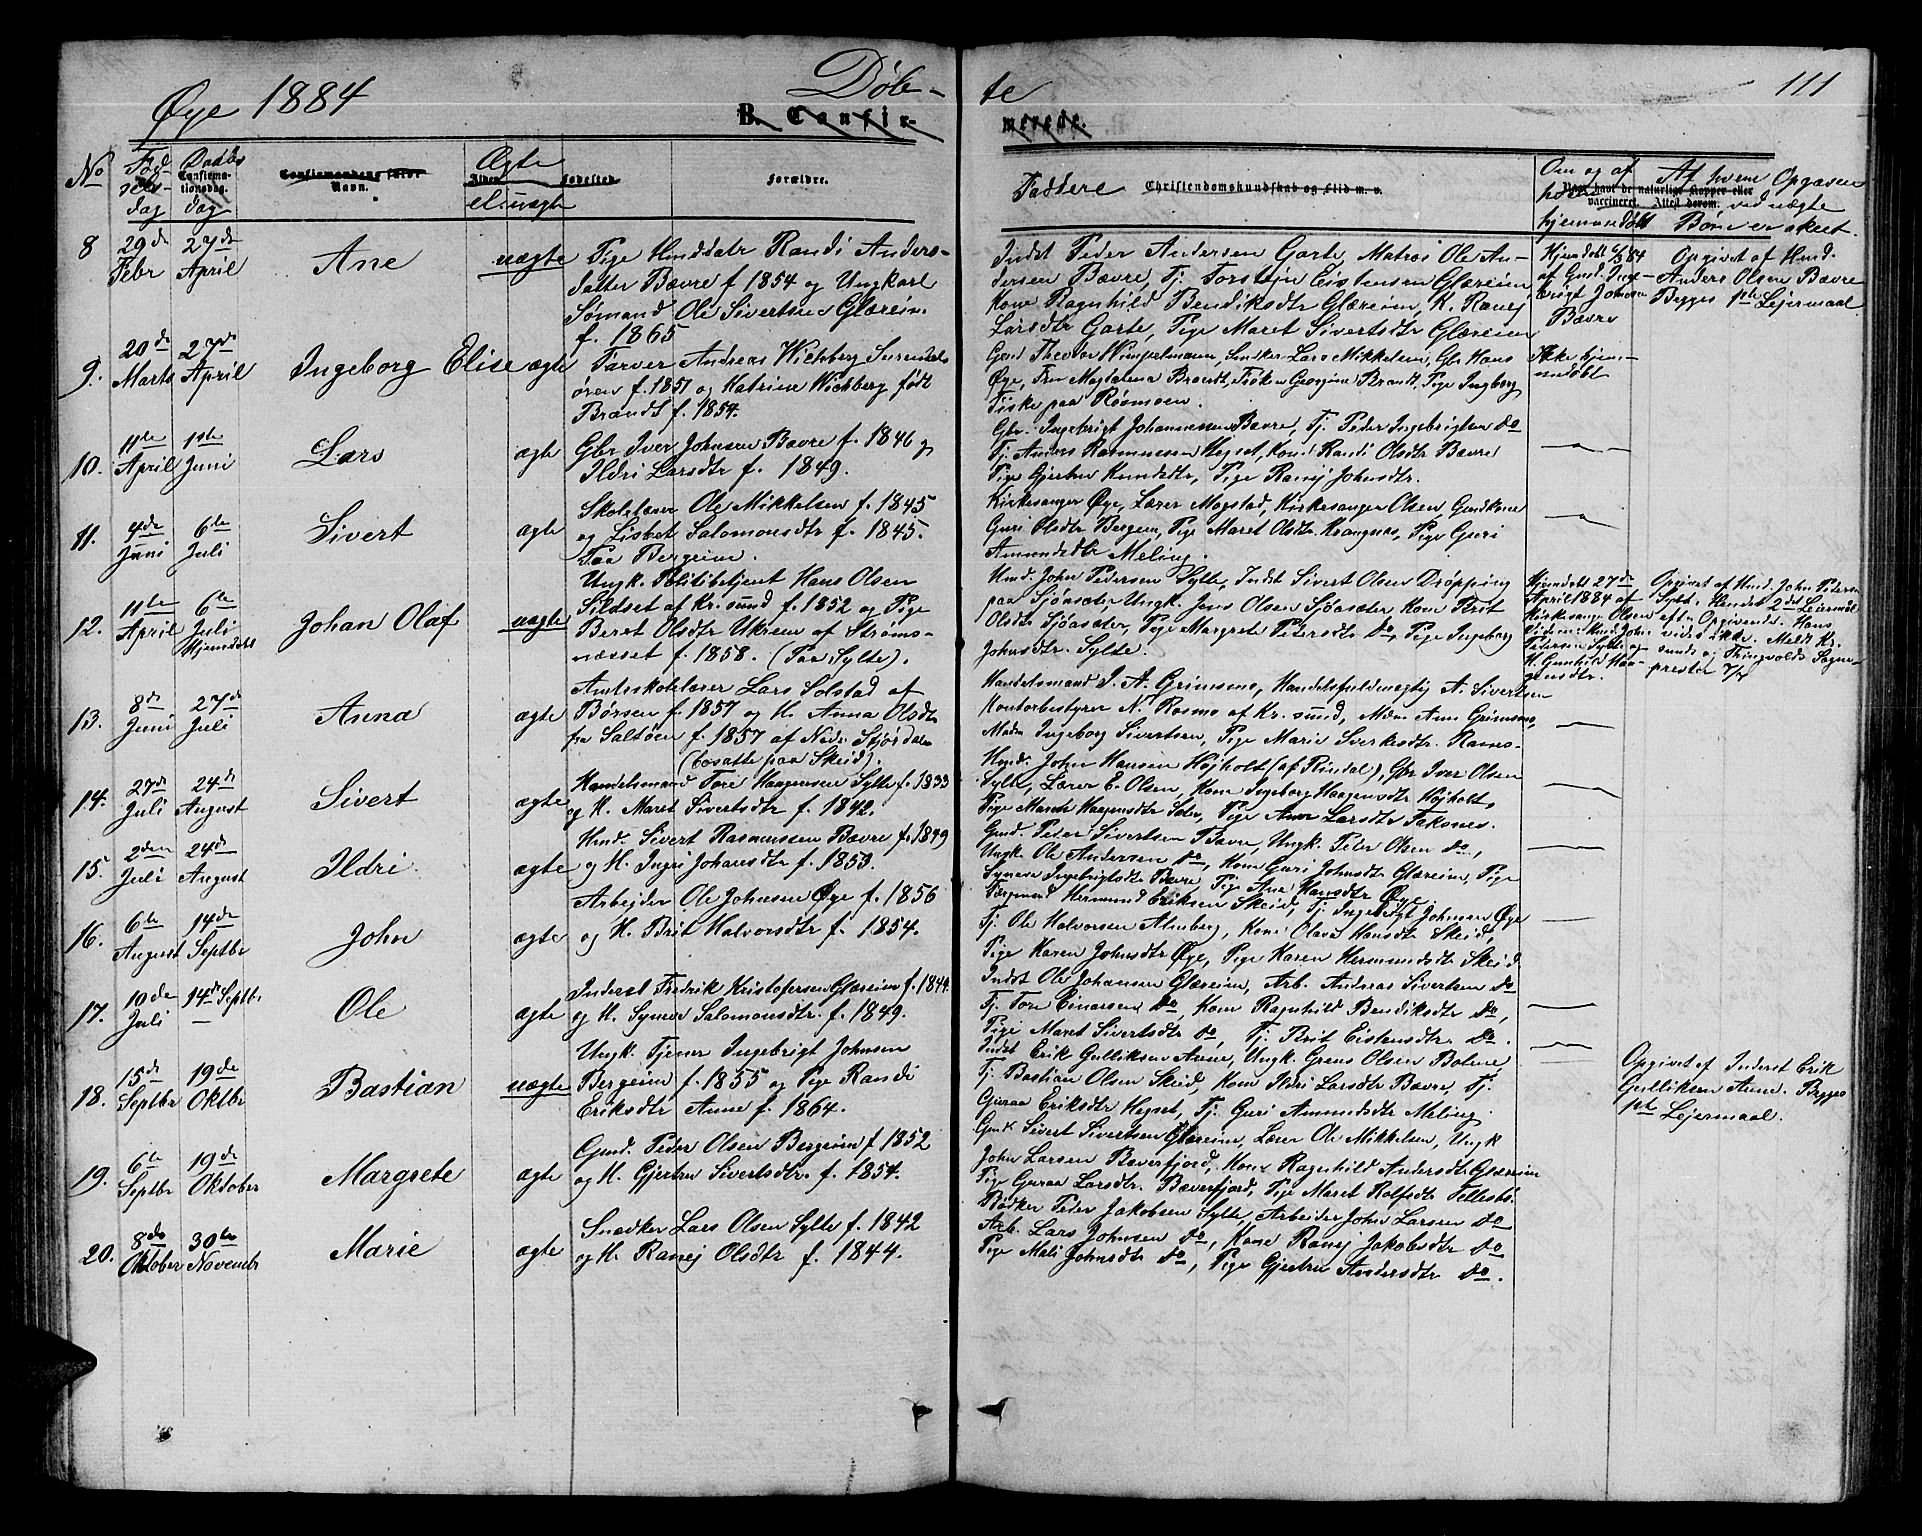 Øye 1884
Døb-
te
111
B. Confir-
merede.
No
Fødselsdag
Daabsdag
Confirmationsdag.
Confirmandens fulde Navn.
Ægte el. uægte
Alder.
Fødested.
Forældre.
Faddere
Christendomskundskab og Flid m. v.
Om og af hvem hjemmedøbt
Naar havt de naturlige Kopper eller vaccineret. Attest derom.
Af hvem Opgaven ved uægte Børn er skeet.
8
29de Febr
27de April
Ane
uægte
Pige Huusdatr Randi Anders-
datter Bævre f 1854 og Ungkarl
Sømand Ole Sivertsen Glæreim
f. 1865
Indst Peder Andersen Garte, Matros Ole An-
dersen Bævre, Tj. Torstejn Eistensen Glæreim,
Kone Ragnhild Bendiksdtr Glæreim, K. Ranej
Larsdtr Garte, Pige Maret Sivertsdtr Glæreim
Hjemdøbt 6/3 84
af Gmd. Inge-
brigt Johnsen
Bævre
Opgivet af Husd.
Anders Olsen Bævre
Begges 1ste Lejermaal
9.
20de Marts
27de April
Ingeborg Elise
ægte
Farver Andreas Wichberg Surendals-
øren f. 1851 og Katrine Wichberg født
Brandt f. 1854.
Gmd Theodor Wimpelmann, Snedker Lars Mikkelsen, Gbr Hans
Øye, Fru Magdalena Brandt, Frøken Georgine Brandt, Pige Ingeborg
Fiske paa Røsmoen.
Ikke hjem-
medøbt
10.
11te April
1ste Juni
Lars
ægte
Gbr Iver Johnsen Bævre f. 1846 og
Ildri Larsdtr f. 1849.
Gbr. Ingebrigt Johannessen Bævre, Tj. Peder Ingebrigtsen Do
Tj Anders Rasmussen Hegset, Kone Randi Olsdtr Bævre
Pige Gjertru Knudsdtr, Pige Ranej Johnsdtr.
11.
4de Juni
6te Juli
Sivert
ægte
Skolelærer Ole Mikkelsen f. 1845
og Lisbet Salomonsdtr f. 1845.
Paa Bergeim.
Kirkesanger Øye, Lærer Mogstad, Kirkesanger Olsen, Gmdkone
Guri Olsdtr Bergem, Pige Maret Olsdtr Krangnes, Pige Guri
Amundsdtr Meling.
12.
11te April
6te Juli
Hjemdøbt
Johan Olaf
uægte
Ungk. Politibetjent Hans Olsen
Sildset af Kr.sund f. 1852 og Pige
Beret Olsdtr Ukrem af Strøms-
næsset f. 1858. (Paa Sylte).
Hmd. John Pedersen Sylte, Indst Sivert Olsen Drøpping
paa Sjøasæter Ungk. Jens Olsen Sjøasæter Kone Brit
Olsdtr Sjøasæter, Pige Margrete Pedersdtr Do, Pige Ingeborg
Johnsdtr. Sylte.
Hjemdøbt 27de
April 1884 af
Kirkesanger Olsen
Vidner: Hmd. John
Pedersen Sylte og
K. Gunhild Haa-
gensdtr.
Opgivet af Hmd. John Peders
Sylte. Hendes 2det Lejermål
efter Opgivende. Hans
vides ikke. Meldt Kr.
sunds og Thingvolds Sogne-
prester 7/7
13.
8de Juni
27de Juli
Anna
ægte
Amtsskolelærer Lars Solstad af
Børsen f. 1857 og K. Anna Olsdtr
fra Saltøen f. 1857 af Nedr. Stjørdalen
(bosatte paa Skeid).
Handelsmand J. A. Grimsmo, Handelsfuldmægtig A. Sivertsen
Kontorbestyrer N. Rosmo af Kr. sund, Mdm Ane Grimsmo,
Madm Ingeborg Sivertsen, Pige Marie Sverkesdtr. Ranes.
14.
27de Juli
24de August
Sivert
ægte
Handelsmand Tore Haagensen Sylte f. 1833
og K. Maret Sivertsdtr f. 1842.
Hmd. John Hansen Højholt (af Rindal), Gbr Iver Olsen
Sylte, Lærer E. Olsen, Kone Ingeborg Haagensdtr Højholt,
Pige Marit Haagensdtr Sæter, Pige Ane Larsdtr Faksnes.
15.
2den Juli
24de August
Ildri.
ægte
Hmd. Sivert Rasmussen Bævre f. 1849
og K. Ingri Johansdtr f. 1853.
Gmd. Peder Sivertsen Bævre, Ungk. Peder Olsen do,
Ungk Ole Andersen do, Kone Guri Johnsdtr Glæreim, Pige
Synøve Ingebrigtsdtr Bævre, Pige Ane Hansdtr Øye.
16.
6te August
14de Septbr
John
ægte
Arbejder Ole Johnsen Øye f. 1856
og K. Brit Halvorsdtr f. 1854.
Færgemand Hermund Eriksen Skeid, Tj. Ingebrigt Johnsen Øye
Tj. Ole Halvorsen Almberg, Kone Olava Hansdtr Skeid,
Pige Karen Johnsdtr Øye, Pige Karen Hermundsdtr Skeid
17.
10de Juli
14de Septbr
Ole
ægte
Inderst Fredrik Kristofersen Glæreim f. 1844
og K. Synøve Salomonsdtr. f. 1849.
Indst Ole Johansen Glæreim, Arb. Andreas Sivertsen Do
Tj. Tore Einarsen Do, Kone Ragnhild Bendiksdtr Do,
Pige Maret Sivertsdtr Do, Tj. Brit Eistensdtr. Do.
18.
15de Septbr
19de Oktbr
Bastian
uægte
Ungk. Tjener Ingebrigt Johnsen
Bergeim f. 1855 og Pige Randi
Eriksdtr Aune f. 1864.
Indst Erik Gulliksen Aune, Ungk. Grens Olsen Bolme,
Tj. Bastian Olsen Skeid, Kone Ildri Larsdtr Bævre, Tj.
Guraa Eriksdtr Hegset, Tj. Guri Amundsdtr Meling.
Opgivet af Inderst Erik
Gulliksen Aune. Begges
1ste Lejermaal.
19.
6te Septbr
19de Oktober
Margrete
ægte
Gmd. Peder Olsen Bergeim f 1852
og K. Gjertru Sivertsdtr. f. 1854.
Gmd Sivert Sivertsen Glæreim, Lærer Ole Mikkelsen, Ungk
John Larsen Bæverfjord, Kone Ragnhild Andersdtr Glæreim
Pige Guraa Larsdtr. Bæverfjord, Pige Maret Rolfsdtr Tellesbø.
20.
8de Oktober
30te Novembr
Marie
ægte
Snedker Lars Olsen Sylte f. 1842
og K. Ranej Olsdtr f. 1844.
Bødker Peder Jakobsen Sylte, Arbeider John Larsen do
Arb. Lars Johnsen Do, Kone Ranej Jakobsdtr do
Pige Mali Johnsdtr do, Pige Gjertru Andersdtr do.